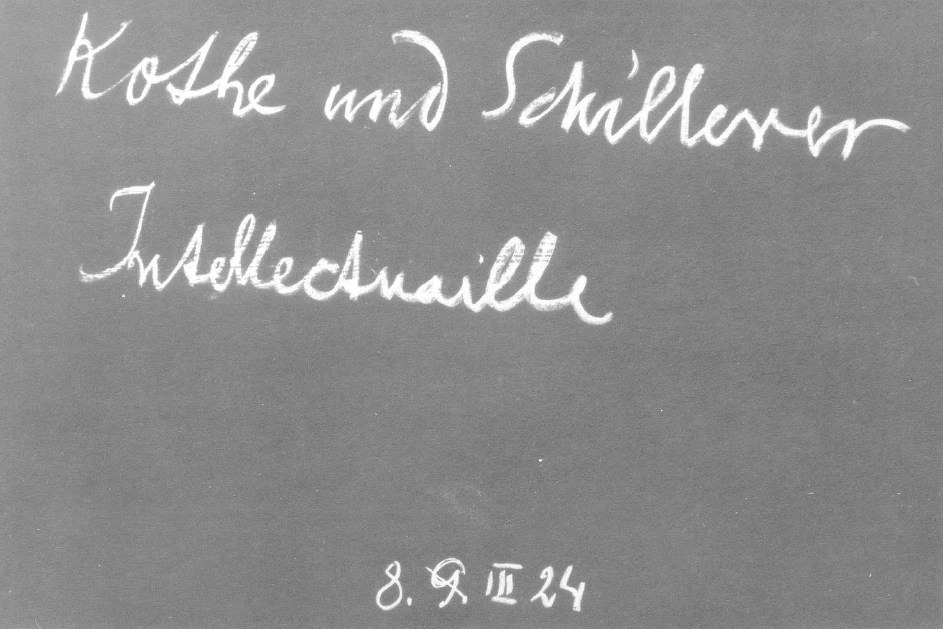 Kothe und Schillerer
Intellectuaille
8. 9. III 24